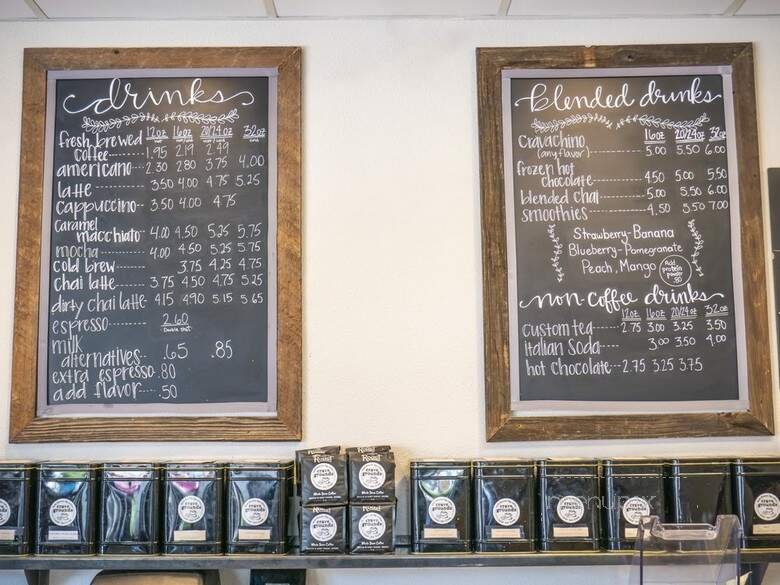 drinks
12oz 16oz 20/24oz 32oz
fresh brewed
coffee 1.95 2.19 2.49
americano 2.30 2.80 3.75 4.00
latte 3.50 4.00 4.75 5.25
cappuccino 3.50 4.00 4.75
caramel
macchiato 4.00 4.50 5.25 5.75
mocha 4.00 4.50 5.25 5.75
cold brew 3.75 4.25 4.75
chai latte 3.75 4.50 4.75 5.25
dirty chai latte 4.15 4.90 5.15 5.65
espresso 2.60
double shot
milk
alternatives .65 .85
extra espresso .80
add flavor .50
blended drinks
16oz 20/24oz 32oz
cravachino 5.00 5.50 6.00
(any flavor)
frozen hot
chocolate 4.50 5.00 5.50
blended chai 5.00 5.50 6.00
smoothies 4.50 5.50 7.00
Strawberry-Banana
Blueberry-Pomegranate
Peach, Mango
Add
protein
powder
.80
non-coffee drinks
12oz 16oz 20/24oz 32oz
custom tea 2.75 3.00 3.25 3.50
italian soda 3.00 3.50 4.00
hot chocolate 2.75 3.25 3.75
Roast
Roast
crave
grounds
Whole Bean Coffee
menupix